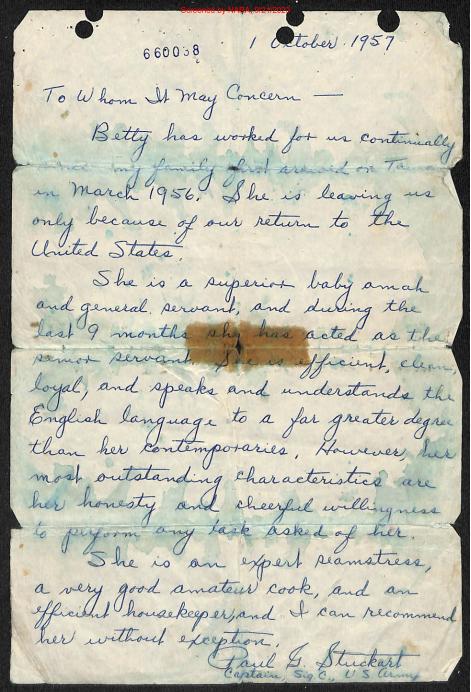 660038
1 October 1957
To Whom It May Concern —
Betty has worked for us continually
since my family first arrived on
in March 1956. She is leaving us
only because of our return to the
United States.
She is a superior baby amah
and general servant, and during the
last 9 months she has acted as the
senior servant. She is efficient, clean,
loyal, and speaks and understands the
English language to a far greater degree
than her contemporaries. However, her
most outstanding characteristics are
her honesty and cheerful willingness
to perform any task asked of her.
She is an expert seamstress,
a very good amateur cook, and an
efficient housekeeper, and I can recommend
her without exception.
Paul G. Stuckart
Captain, Sig C., US Army